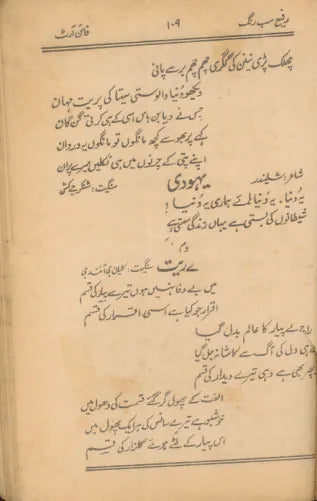 رفیع سب رنگ ۱۰۹ فائن آرٹ
چھلک پڑی نینن کی گگری چھم چھم برسے پانی
دیکھو دنیا والو ستی سیتا کی پریت یہاں
جس نے دیا بن باس اسی کے ہی کرتی گن گان
کہے پربھو سے کچھ مانگوں تو مانگوں یہ وردان
اپنے پتی کے چرنوں میں ہی نکلیں میرے پران
شاعر: شیلندر یہودی سنگیت: شنکر جے کشن
یہ دنیا۔ یہ دنیا ہائے ہماری یہ دنیا!
شیطانوں کی بستی ہے یہاں زندگی سستی ہے
بے ریت سنگیت: کلیان جی آنند جی
میں بے وفا نہیں ہوں تیرے پیار کی قسم
اقرار جو کیا ہے اسی اقرار کی قسم
پیار کا عالم بدل گیا
ہی دل کی آگ سے کاشانہ جل گیا
پھر بھی ہے وہی تیرے دیدار کی قسم
الفت کے پھول گر گئے قسمت کی دھول میں
خوشبو ہے تیرے سانس کی ہر ایک پھول میں
اس پیار کے لٹے ہوئے گلزار کی قسم